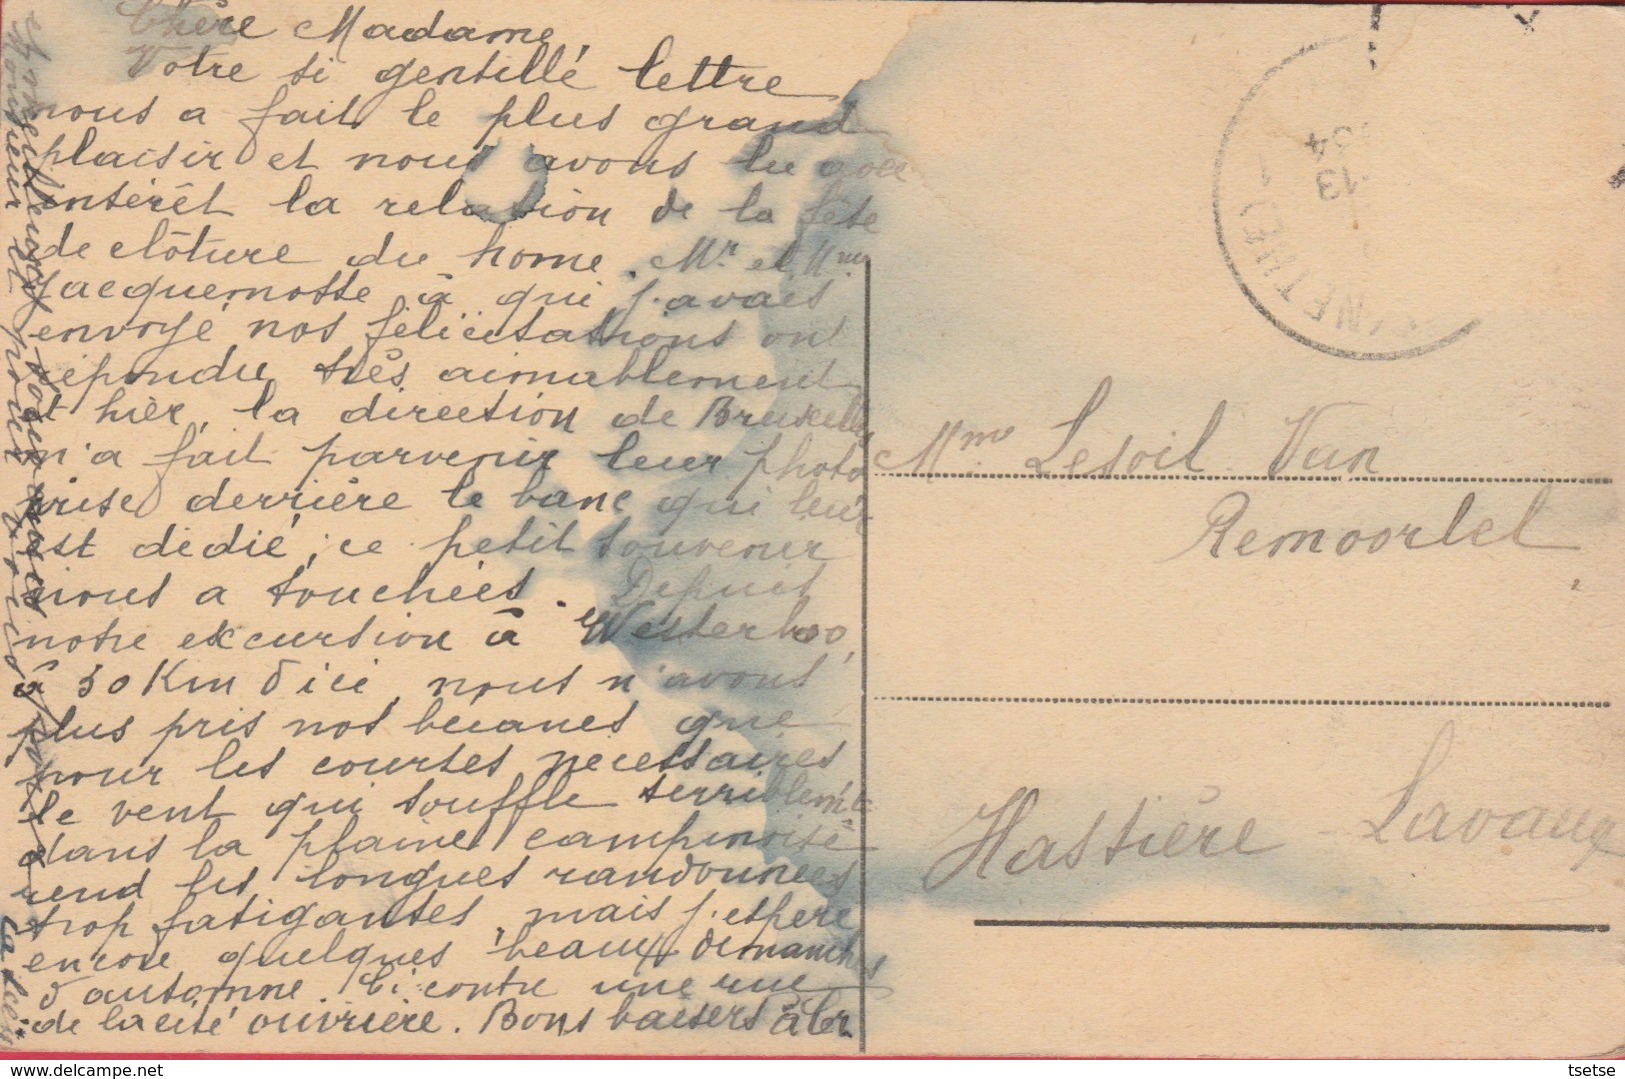 Chère Madame,
Votre si gentille lettre
nous a fait le plus grand
plaisir et nous avons lu avec
intérêt la relation de la fête
de clôture du home. Mr et Mme
Jacquemotte à qui j'avais
envoyé nos félicitations ont
répondu très aimablement
et hièr, la direction de Bruxelles
m'a fait parvenir leur photo
prise derrière le banc qui leur
est dédié, ce petit souvenir
nous a touchées. Depuis
notre excursion à Westerloo,
à 30 Km d'ici, nous n'avons
plus pris nos bécanes que
pour les courses nécessaires
le vent qui souffle terriblemt
dans la plaine campinoise
rend les longues randonnées
trop fatigantes, mais j'espère
encore quelques beaux dimanches
d'automne. Ci contre une rue
de la cité ouvrière. Bons baisers à
Monsieur et pour vous
Mme Lesoil-Van
Remoortel
Hastière-Lavaux
13
34